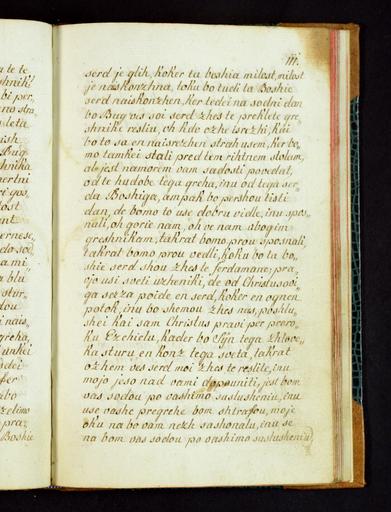 111.
serd je glih, koker ta boshia milost, milost
je naiskonzhna, toku bo tudi ta Boshie
serd naiskonzhen, ker tedei na sodni dan
bo Bug vos soi serd zhes te preklete gre,,
shnike resliu, oh kde ozhe isrezhi, kai
bo to sa en naisrezhen strah usem, ker bo,,
mo tamkei stali pred tem rihtnem stolam,
ale jest namorem vam sadosti povedat,
od te hudobe tega greha, inu od tega ser,,
da Boshiga, ampak bo pershou tisti
dan, de bomo to use dobru vidle, inu spos,,
nali, oh gorie nam, oh ve nam vbogim
greshnikam, takrat bomo prou sposnali,
takrat bomo prou vedli, koku bo ta bo,,
shie serd shou zhes te ferdamane; pra,,
vjo usi sveti uzheniki, de od Christusovi,,
ga serza poide en serd, koker en ognen
potok, inu bo shemou zhes nas, poshlu,,
shei kai sam Christus pravi per prero,,
ku Ezechielu, kader bo Syn tega zhlove,,
ka sturu en konz tega sveta, takrat
ozhem ves serd moi zhes te reslite, inu
mojo jeso nad vami dopouniti, jest bom
vas sodou po vashimo saslusheniu, inu
use vashe pregrehe bom shtrafou, moje
oku na bo vam nezh sashonalu, inu se
na bom vas sodou po vashimo saslusheniu,